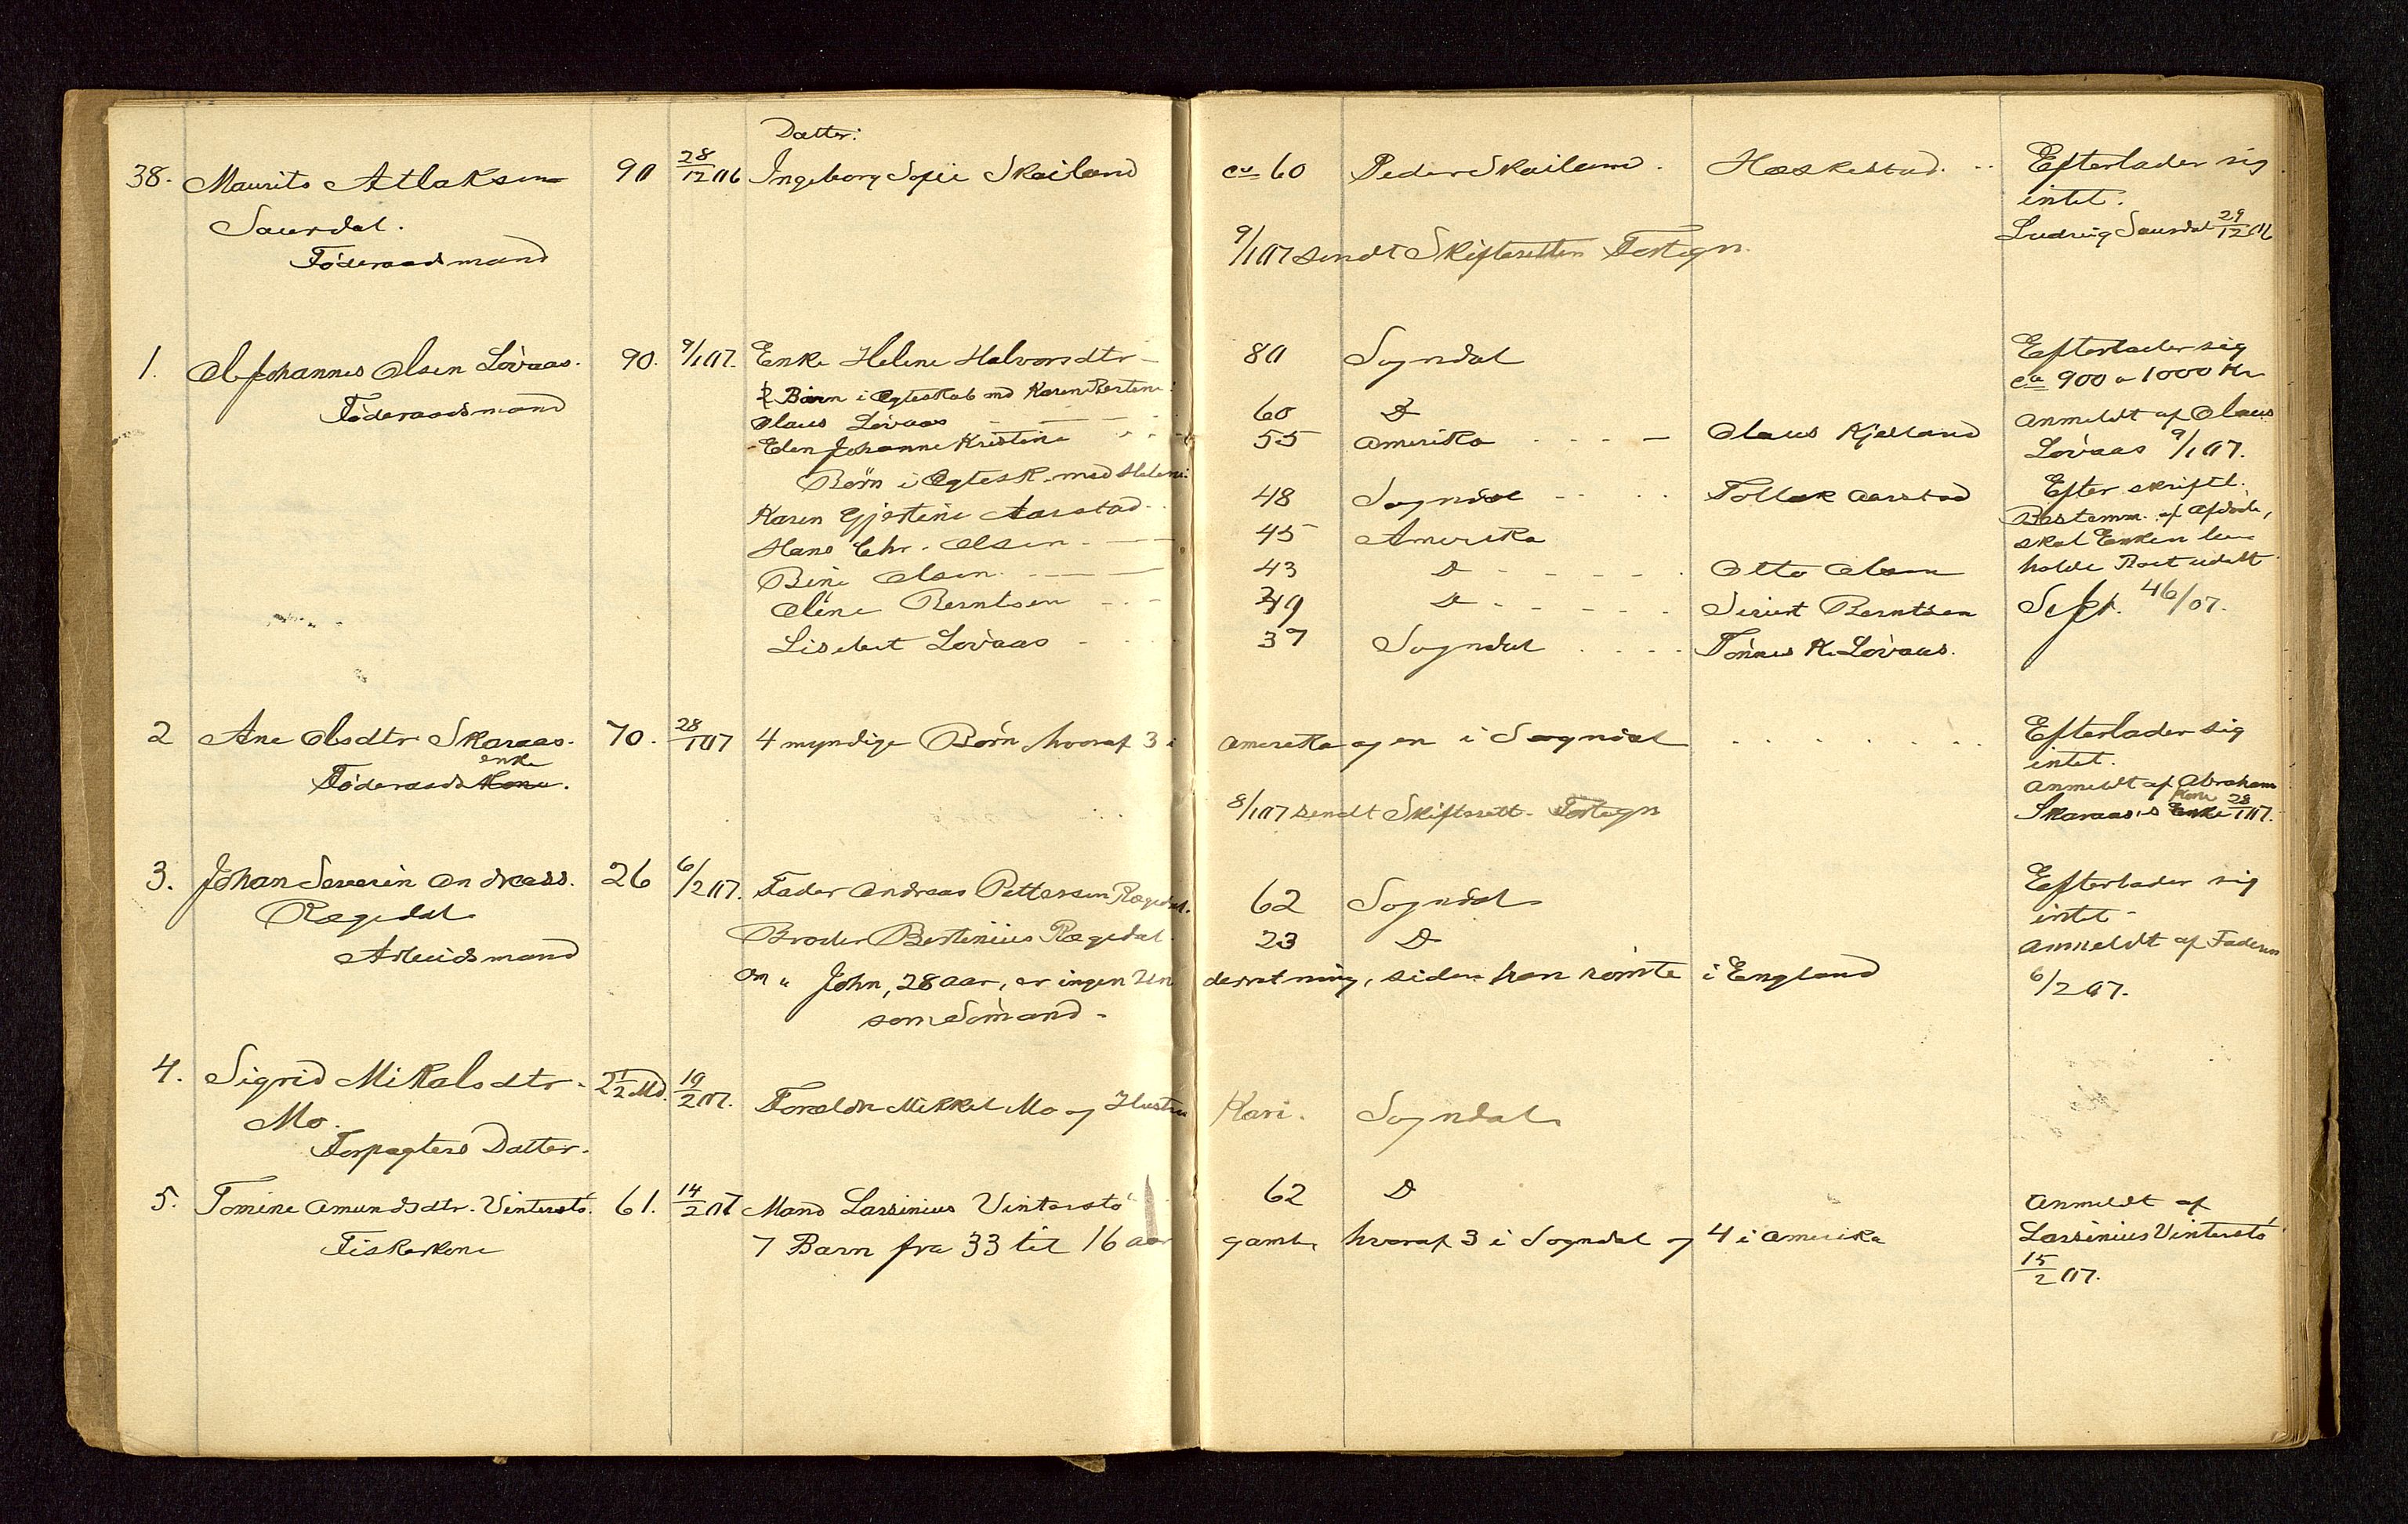 Datter:
38. Maurits Atlaksen 90 28/12 06 Ingeborg Sofie Skailand ca 60 Peder Skailand. Heskestad. Efterlader sig
Saurdal. intet.
Föderaadsmand 9/1 07 sendt Skifteretten Fortegn. Ludvig Saurdal 29/12 06
1. Ole Johannes Olsen Lövaas. 90. 9/1 07. Enke Helene Halvorsdtr 80 Sogndal Efterlader sig
Föderaadsmand 2 Barn i Ægteskab med Karen Bertine: ca 900 a 1000 Kr
Olaus Lövaas 60 Do anmeldt af Olaus
Elen Johanne Kristine 55 Amerika Olaus Kjelland Lövaas 9/1 07.
Börn i Ægtesk. med Helene: Efter skriftl.
Karen Gjertine Aarstad 48 Sogndal Tollak Aarstad Bestemm. af Afdöde,
Hans Chr. Olsen 45 Amerika skal Enken be
Bine Olsen 43 Do Otto Olsen holde Boet udelt
Oline Berntsen 49 Do Sivert Berntsen Sept. 46/07.
Lisebet Lövaas 37 Sogndal Tönnes K. Lövaas.
2 Ane Olsdtr Skaraas. 70. 28/1 07 4 myndige Börn hvoraf 3 i Amerika og en i Sogndal Efterlader sig
enke intet.
Föderaads Kone. anmeldt af Abraham
8/1 07 sendt Skifterett. Fortegn Skaraas's Kone Enke 28/1 07.
3. Johan Severin Andreass. 26 6/2 07. Fader Andreas Pettersen Rægedal. 62 Sogndal Efterlader sig
Rægedal intet
Arbeidsmand Broder Bertinius Rægedal 23 Do anmeldt af Faderen
Om " John, 28 aar, er ingen Underretning, siden han römte i England 6/2 07.
som Sömand.
4. Sigrid Mikalsdtr. 2 1/2 Md. 10/2 07. Foreldr Mikkel Mo og Hustru Kari. Sogndal
Mo.
Forpagters Datter.
5. Tomine Amundsdtr. Vinterstö. 61. 14/2 07 Mand Lassinius Vinterstö 62 Do Anmeldt af
Fiskerkone 7 Barn fra 33 til 16 aar gaml, hvoraf 3 i Sogndal og 4 i Amerika Lassinius Vinterstö
15/2 07.